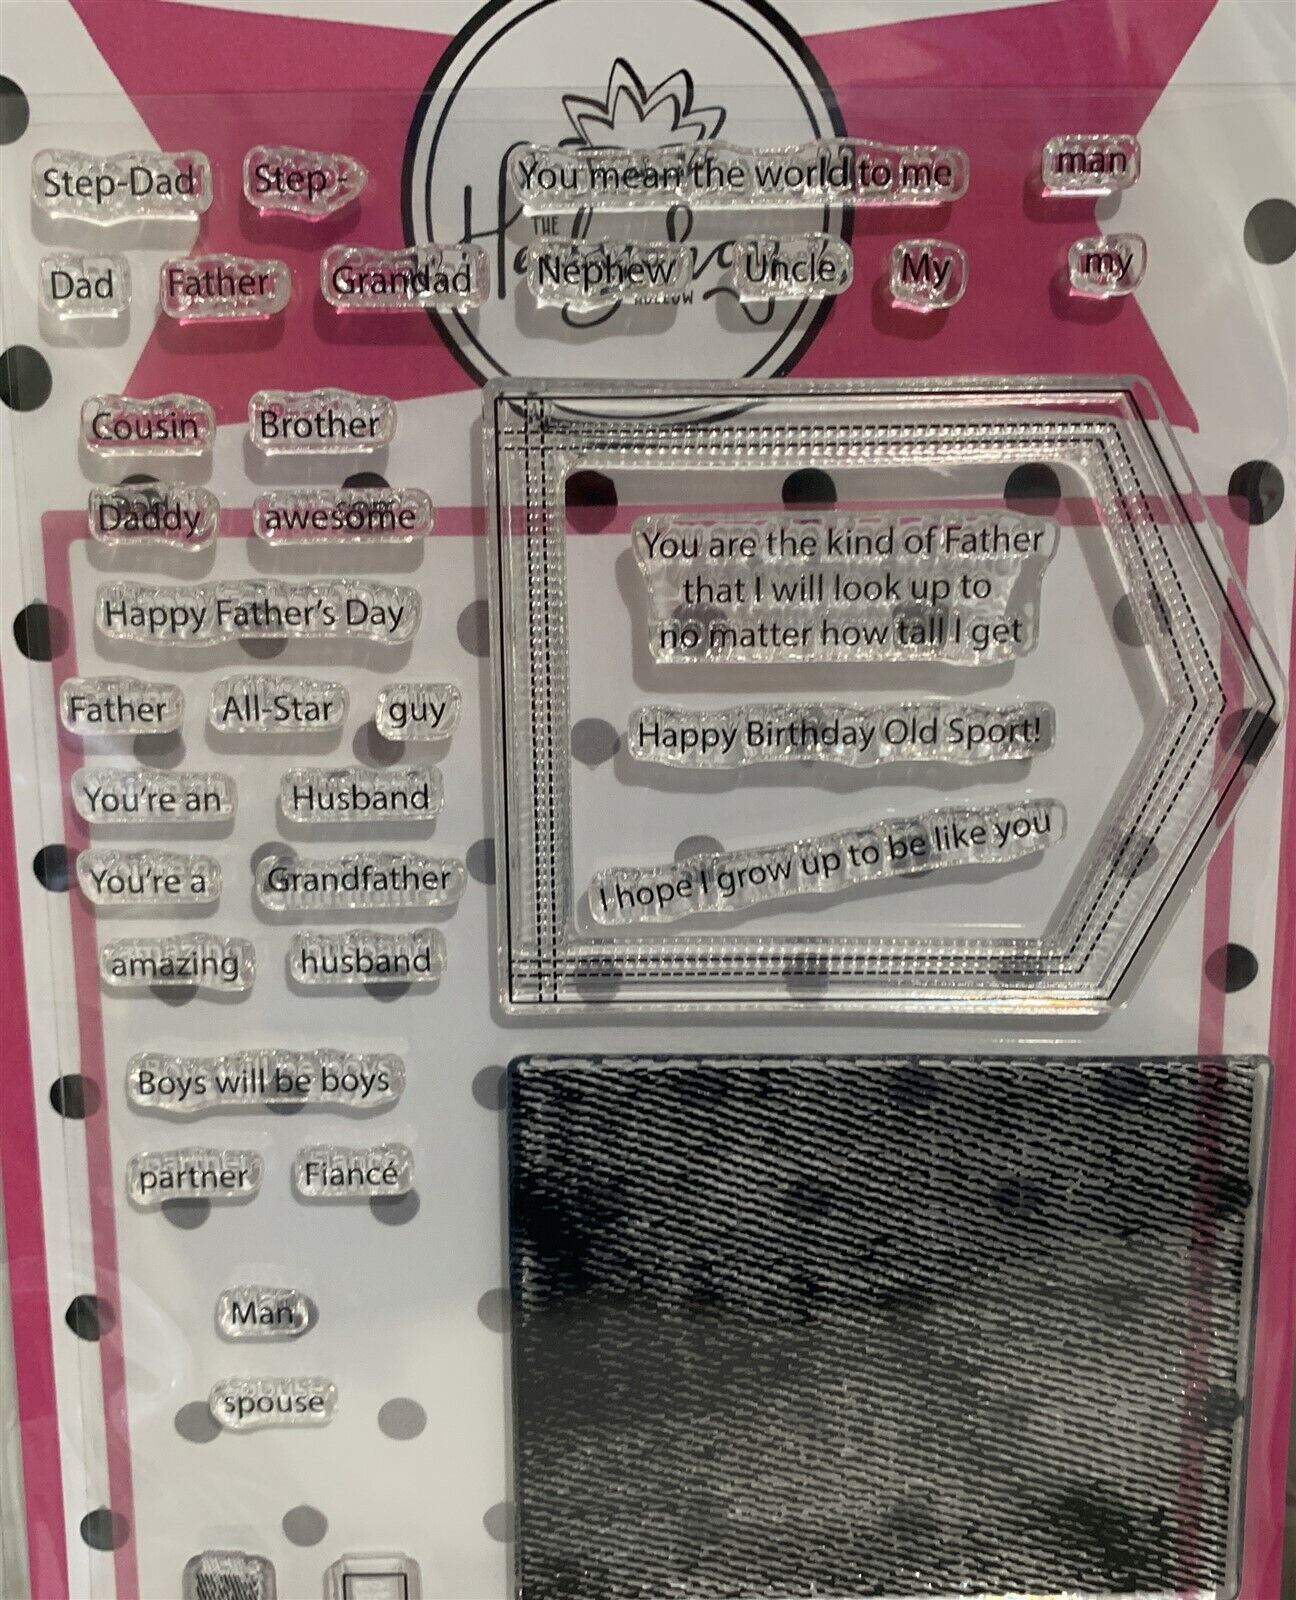 Step-Dad Step- You mean the world to me man
Dad Father Grandad Nephew Uncle My my
THE
HOLLOW
Cousin Brother
Daddy awesome
Happy Father's Day
Father All-Star guy
You're an Husband
You're a Grandfather
amazing husband
Boys will be boys
partner Fiancé
Man
spouse
You are the kind of Father
that I will look up to
no matter how tall I get
Happy Birthday Old Sport!
I hope I grow up to be like you